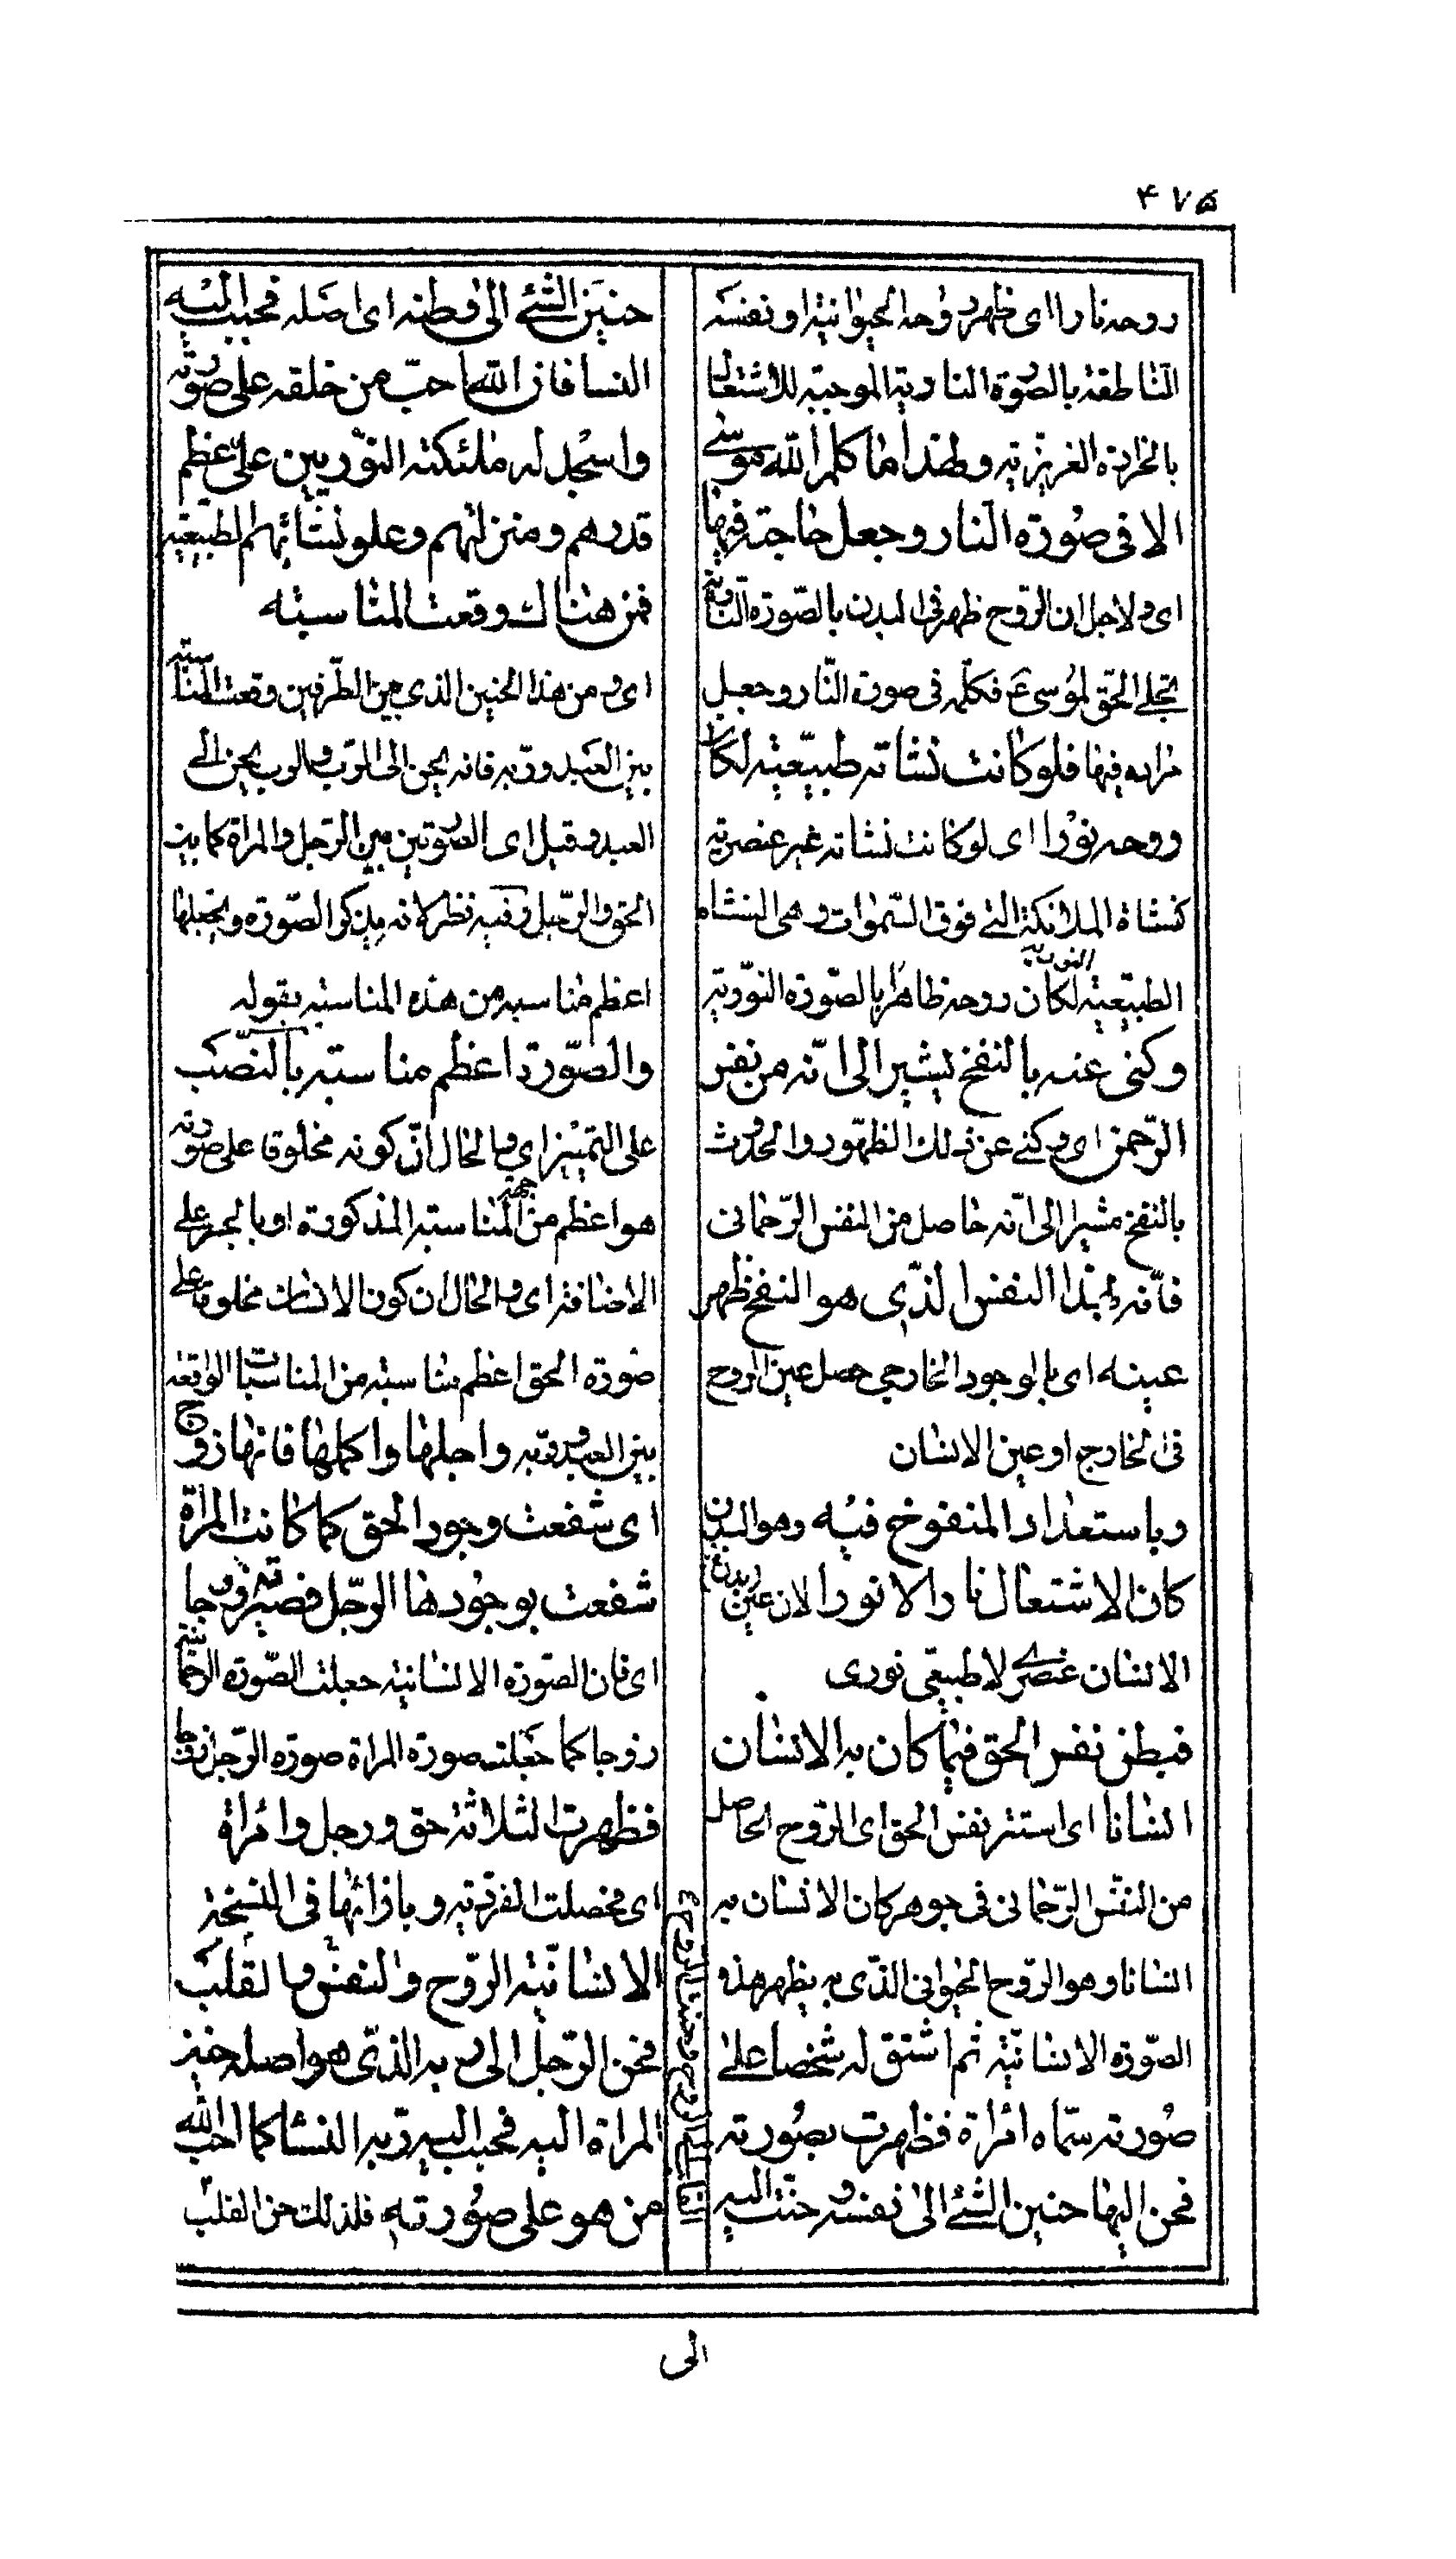 ۴۷۵
روحه نارا ای ظهر روحه الحیوانیة او نفسه
الناطقة بالصورة الناریة الموجبة للاشتعال
بالحرارة الغریزیة ولهذا ما کلم الله موسی
الا فی صورة النار وجعل حاجته فیها
ای ولاجل ان الروح ظهر فی البدن بالصورة الناریة
تجلی الحق لموسی عم فکلمه فی صورة النار وجعل
مراده فیها فلو کانت نشاته طبیعیة لکان
روحه نورا ای لو کانت نشاته غیر عنصریة
کنشاة الملائکة التی فوق السموات وهی النشاه
الطبیعیة النوریة لکان روحه ظاهرا بالصورة النوریة
وکنی عنه بالنفخ یشیر الی انه من نفس
الرحمن ای وکنی عن ذلک الظهور والحدوث
بالنفخ مشیرا الی انه حاصل من النفس الرحمانی
فانه بهذا النفس الذی هو النفخ ظهر
عینه ای بالوجود الخارجی حصل عین الروح
فی الخارج او عین الانسان
وباستعداد المنفوخ فیه وهو البدن
کان الاشتعال نارا لا نورا لان عین بدن
الانسان عنصری لا طبیعی نوری
فبطن نفس الحق فیما کان به الانسان
انسانا ای استتر نفس الحق ای الروح الحاصل
من النفس الرحمانی فی جوهر کان الانسان به
انسانا وهو الروح الحیوانی الذی به یظهر هذه
الصورة الانسانیة ثم اشتق له شخصا علی
صورته سماه امراة فظهرت بصورته
فحن الیها حنین الشئ الی نفسه وحنت الیه
حنین الشئ الی وطنه ای اصله فحبب الیه
النسا فان الله احب من خلقه علی صورته
واسجد له ملئکته النوریین علی عظم
قدرهم ومنزلتهم وعلو نشاتهم الطبیعیة
فمن هناک وقعت المناسبة
ای ومن هذا الحنین الذی بین الطرفین وقعت المناسبة
بین العبد وربه فانه یحن الی الرب والرب یحن الی
العبد وقیل ای الصورتین بین الرجل والمراة کما بین
الحق والرجل وفیه نظر لانه یذکر الصورة ویجعلها
اعظم مناسبه من هذه المناسبة بقوله
والصورة اعظم مناسبة بالنصب
علی التمییز ای والحال ان کونه مخلوقا علی صورته
هو اعظم من المناسبة المذکورة او بالجر علی
الاضافة ای والحال ان کون الانسان مخلوقا علی
صورة الحق اعظم مناسبة من المناسبات الواقعة
بین العبد وربه واجلها واکملها فانها زوج
ای شفعت وجود الحق کما کانت المراة
شفعت بوجودها الرجل فصیرته زوجا
ای فان الصورة الانسانیة جعلت الصورة الرحمانیة
زوجا کما جعلت صورة المراة صورة الرجل زوجا
فظهرت الثلاثة حق ورجل وامراة
ای فحصلت الفردیة وبازائها فی النسخة
الانسانیة الروح والنفس والقلب
فحن الرجل الی ربه الذی هو اصله حنین
المراة الیه فحبب الیه ربه النسا کما احب الله
من هو علی صورته فلذلک حن القلب
الی